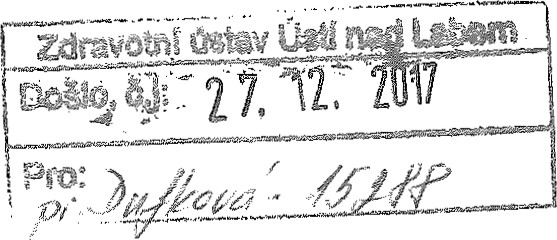 Zdravotní ústav Ústí nad Labem
Došlo, čj: 27. 12. 2017
Pro:
pí Dufková - 15288